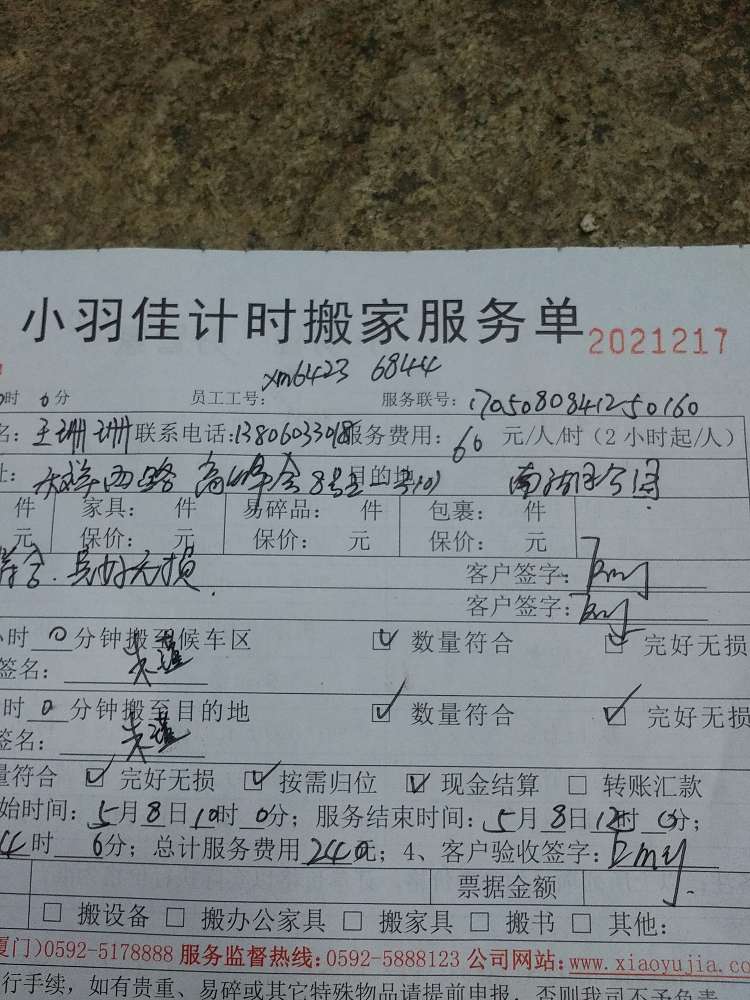 小羽佳计时搬家服务单 2021217
时 0 分 员工工号: xm6423 6844 服务联号: 170508084125 0160
名: 王珊珊 联系电话: 13806033018 服务费用: 60 元/人/时 (2小时起/人)
址: 西路 8号 101 目的地
件 家具: 件 易碎品: 件 包裹: 件
元 保价: 元 保价: 元 保价: 元
符合.完好无损. 客户签字:
客户签字:
小时 0 分钟搬至候车区 ☑ 数量符合 ☑ 完好无损
签名:
时 0 分钟搬至目的地 ☑ 数量符合 ☑ 完好无损
签名:
量符合 ☑ 完好无损 ☑ 按需归位 ☑ 现金结算 □ 转账汇款
始时间: 5月8日10时0分; 服务结束时间: 5月8日12时0分;
4时 6分; 总计服务费用 240元; 4、客户验收签字:
票据金额
□ 搬设备 □ 搬办公家具 □ 搬家具 □ 搬书 □ 其他:
厦门)0592-5178888 服务监督热线:0592-5888123 公司网站:www.xiaoyujia.co
行手续,如有贵重、易碎或其它特殊物品请提前申报,否则我司不予负责